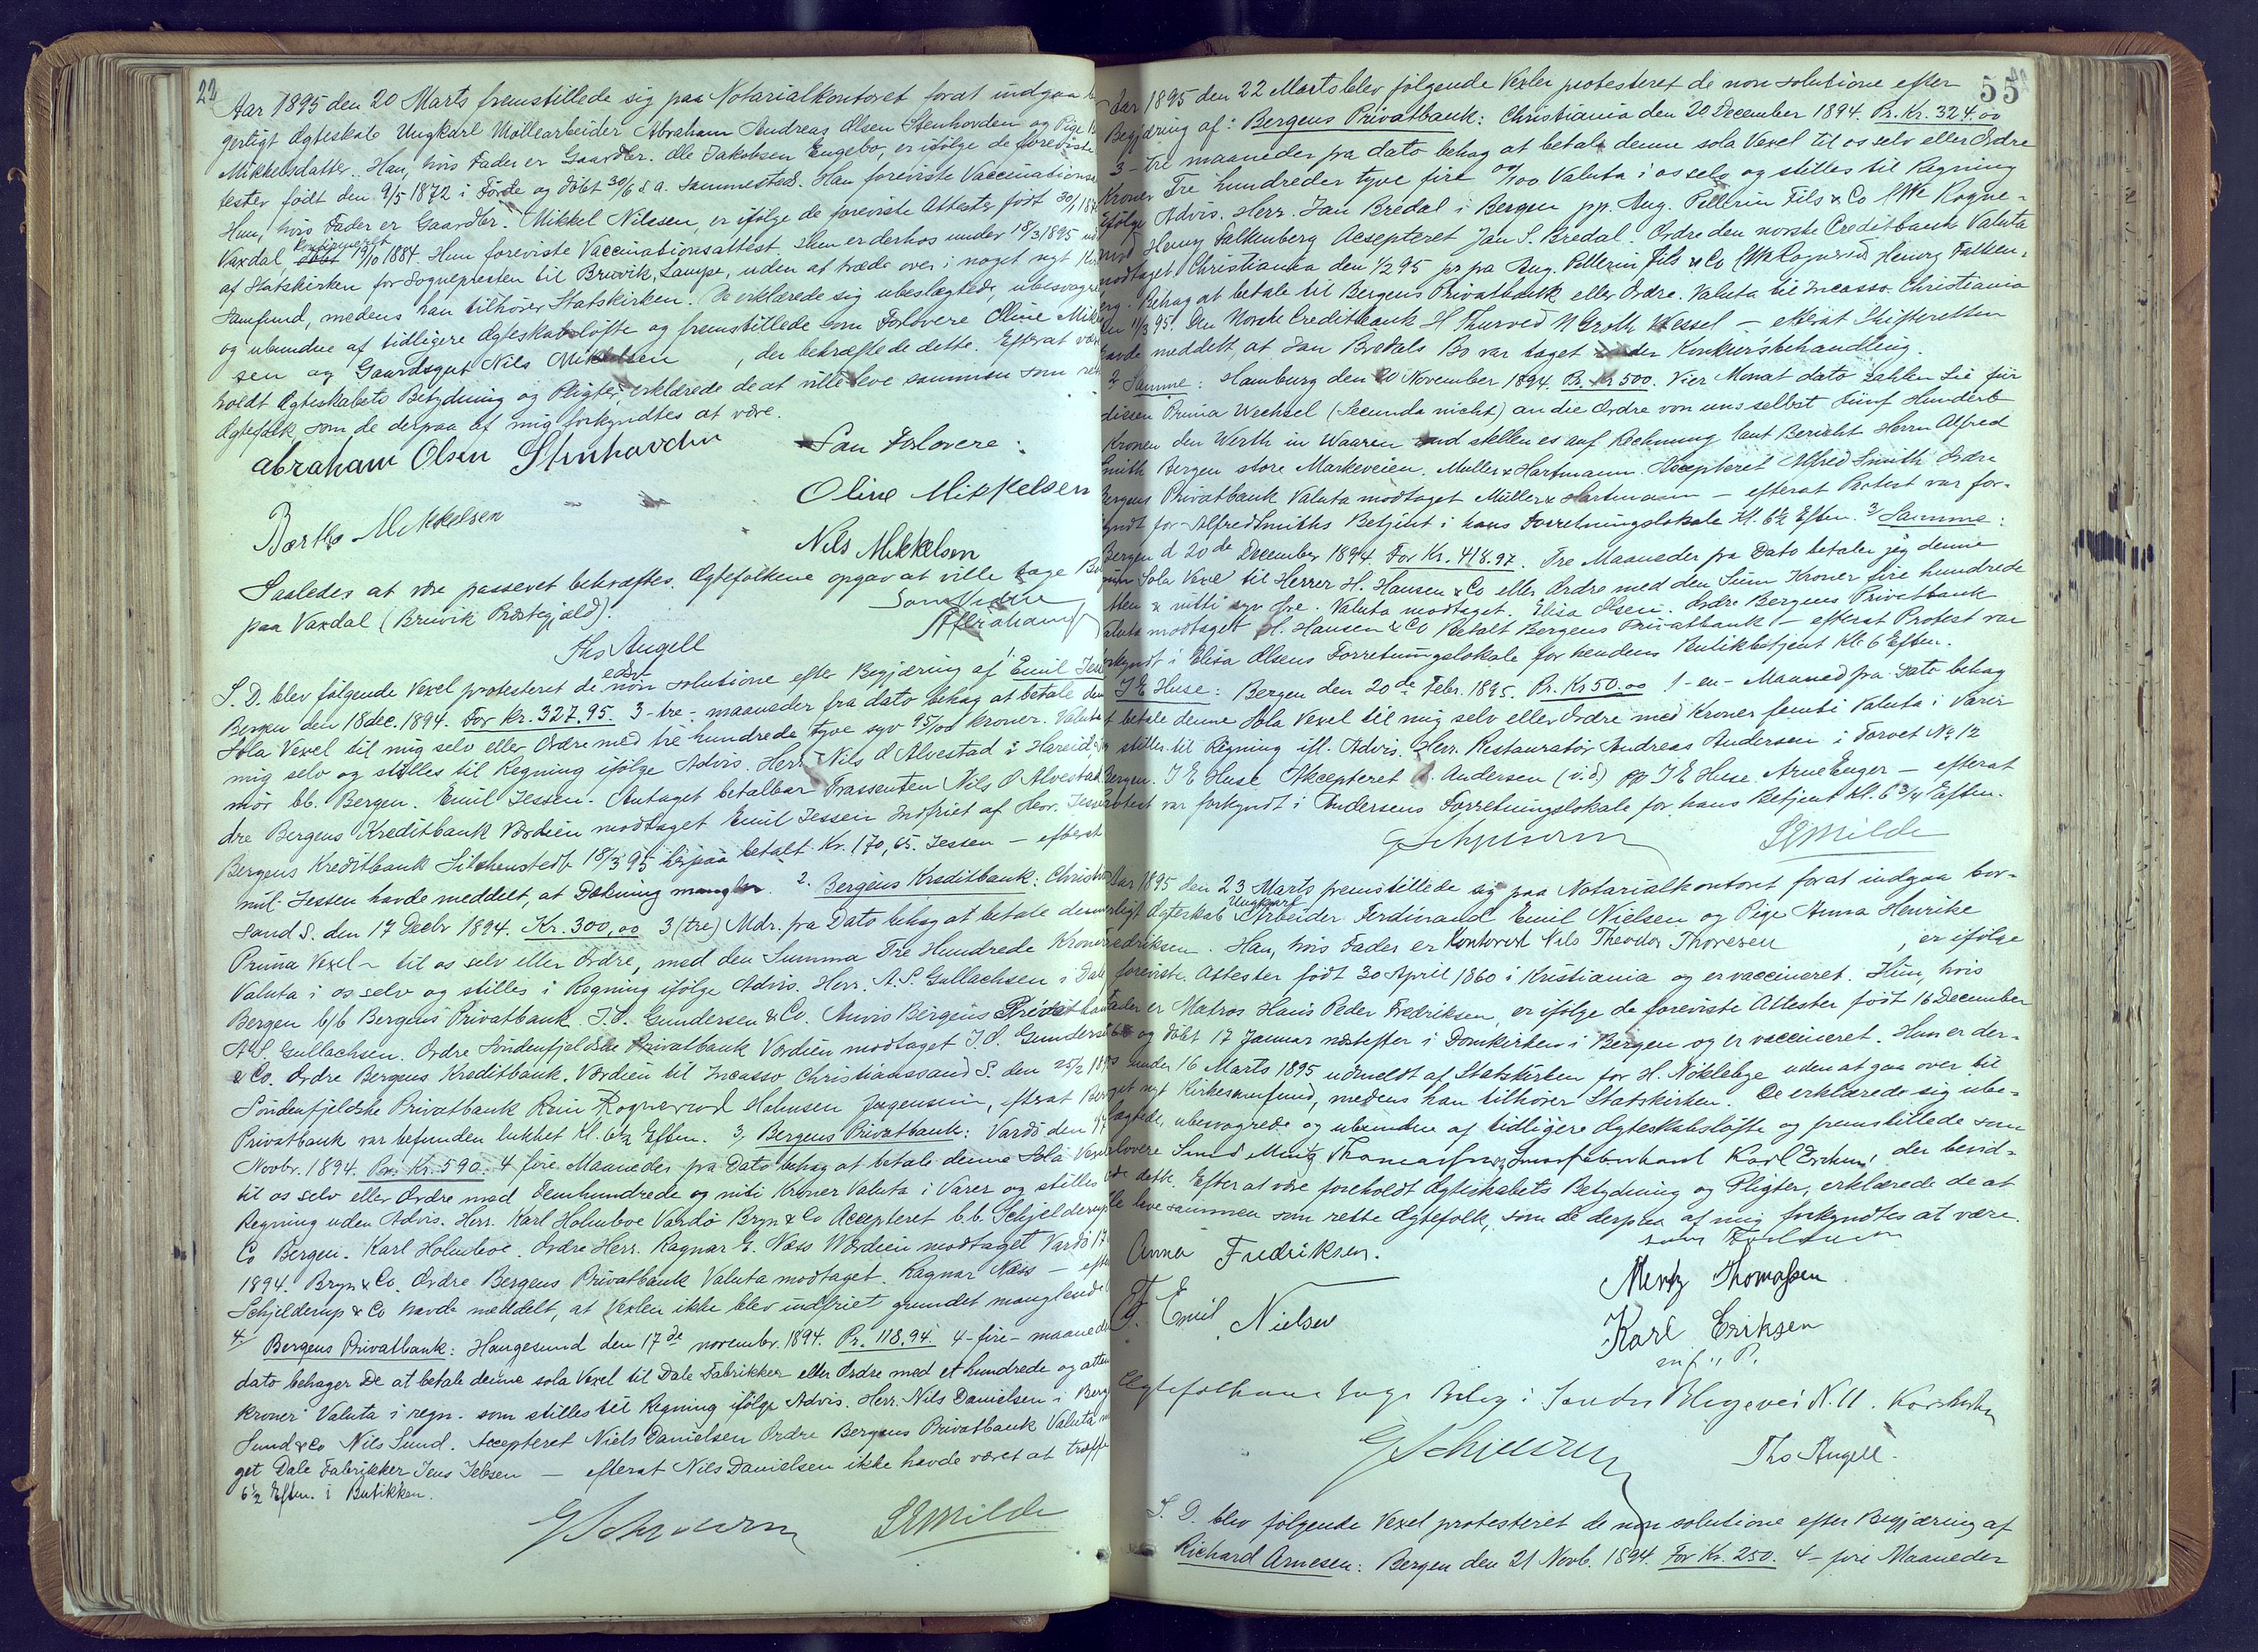 22
Aar 1895 den 20 Marts fremstillede sig paa Notarialkontoret forat indgaa
gerligt Ægteskab Ungkarl Møllearbeider Abraham Andreas Olsen Stenhovden og Pige
Mikkelsdatter. Han, hvis Fader er Gaardbr. Ole Jakobsen Engebø, er ifølge de foreviste
tester født den 9/5 1872 i Førde og døbt 30/6 s. a. sammesteds. Han foreviste Vaccinations
Hun, hvis Fader er Gaardbr. Mikkel Nilssen, er ifølge de foreviste Attester født 30/1
Vaxdal døbt konfirmeret 19/10 1884. Hun foreviste Vaccinationsattest. Hun er derhos under 18/3 1895
af Statskirken for Sognepresten til Bruvik, Lampe, uden at træde over i noget nyt
Samfund, medens han tilhører Statskirken. De erklærede sig ubeslægtede, ubesvogre
og ubundne af tidligere Ægteskabsløfte og fremstillede som Forlovere Oline Mik
sen og Gaardsgut Nils Mikkelsen , der bekræftede dette. Efterat være
holdt Ægteskabets Betydning og Pligter, erklærede de at ville leve sammen som
Ægtefolk, som de derpaa af mig forkyndtes at være.
Abraham Olsen Stenhovden Som Forlovere:
Oline Mikkelsen
Berthe Mikkelsen
Nils Mikkelsen
Saaledes at være passeret bekræftes. Ægtefolkene opgav at ville tage
paa Vaxdal (Bruvik Præstegjeld).
Som Vidne
Tho Angell
S. D. blev følgende Vexel protesteret de non solutione efter Begjæring af Emil Jes
Bergen den 18 dec. 1894. For Kr. 327.95 3-tre- maaneder fra dato behag at betale den
Sola Vexel til mig selv eller Ordre med tre hundrede tyve syv 95/100 kroner. Valuta
mig selv og stilles til Regning ifølge Advis. Herr Nils O Alvestad i Hareid
mør bb. Bergen. Emil Jessen. Antaget betalbar Trassenten Nils O Alvestad
dre Bergens Kreditbank Værdien modtaget Emil Jessen Indfriet af Herr. Jessen
Bergens Kreditbank 18/3 95 herpaa betalt Kr. 170,65. Jessen — efterat
mil Jessen havde meddelt, at Dækning mangler. 2. Bergens Kreditbank: Christi
sand S. den 17 Decbr 1894. Kr. 300,00 3 (tre) Mdr. fra Dato behag at betale denne
Prima Vexel - til os selv eller Ordre, med den Summa Tre Hundrede Kroner
Valuta i os selv og stilles i Regning ifølge Advis. Herr. A. S. Gullachsen i Dale
Bergen b/b Bergens Privatbank. J. O. Gundersen & Co. Anvis Bergens Privatbank
A. S. Gullachsen. Ordre Søndenfjeldske Privatbank Værdien modtaget J. O. Gundersen
& Co. Ordre Bergens Kreditbank. Værdien til Incasso Christianssand S. den 25/2 1895
Søndenfjeldske Privatbank Holmsen Jørgensen, efterat Bergens
Privatbank var befunden lukket Kl. 6½ Eftm. 3, Bergens Privatbank: Vardø den 17
Novbr. 1894. Pr. Kr. 590. 4 fire Maaneder fra Dato behag at betale denne Sola Vexel
til os selv eller Ordre med Femhundrede og nitti Kroner Valuta i Varer og stilles
Regning uden Advis. Herr. Karl Holmboe Vardø Bryn & Co Accepteret b.b. Schjelderup
Co Bergen. Karl Holmboe. Ordre Herr. Ragnar E. Næss Værdien modtaget Vardø 17
1894. Bryn & Co. Ordre Bergens Privatbank Valuta modtaget. Ragnar Næss — efter
Schjelderup & Co havde meddelt, at Vexlen ikke blev indfriet grundet manglende
4. Bergens Privatbank: Haugesund den 17de novembr. 1894. Pr. 118.94. 4-fire- maaneder
dato behager De at betale denne sola Vexel til Dale Fabrikker eller Ordre med et hundrede og atten
kroner Valuta i regn. som stilles til Regning ifølge Advis. Herr. Nils Danielsen i Berg
Sund & Co Nils Sund. Accepteret Niels Danielsen Ordre Bergens Privatbank Valuta
get Dale Fabrikker Jens Jebsen — efterat Nils Danielsen ikke havde været at træffe
6½ Eftm. i Butikken.
SE Milde
55
Aar 1895 den 22 Marts blev følgende Vexler protesteret de non solutione efter
Begjæring af: Bergens Privatbank: Christiania den 20 December 1894. Pr. Kr. 324.00
3 - tre maaneder fra dato behag at betale denne sola Vexel til os selv eller Ordre
Kroner Tre hundreder tyve fire 00/100 Valuta i os selv og stilles til Regning
ifølge Advis. Herr. Jan Bredal i Bergen pp. Aug. Pellerin Fils & Co
Henry Falkenberg Accepteret Jan S. Bredal. Ordre den norske Creditbank Valuta
modtaget Christiania den 1/2 95 pr pa Aug. Pellerin fils & Co Henry Falken-
berg. Behag at betale til Bergens Privatbank eller Ordre. Valuta til Incasso. Christiania
den 11/3 95. Den Norske Creditbank H Thurved N Groth Wessel — efterat Skifteretten
havde meddelt, at Jan Bredals Bo var taget under Konkursbehandling.
2 Samme: Hamburg den 20 November 1894. Pr. Kr 500. Vier Monat dato zahlen Sie für
diesen Prima Wechsel (Secunda nicht) an die Ordre von uns selbst fünf Hundert
Kronen den Werth in Waaren und stellen es auf Rechnung laut Bericht Herrn Alfred
Smith Bergen store Markeveien. Müller & Hartmann. Accepteret Alfred Smith Ordre
Bergens Privatbank Valuta modtaget Müller & Hartmann — efterat Protest var for-
kyndt for Alfred Smiths Betjent i hans Forretningslokale Kl. 6½ Eftm. 3/ Samme:
Bergen d 20de December 1894. For Kr. 418.97. Tre Maaneder fra Dato betaler jeg denne
min Sola Vexel til Herrer H. Hansen & Co eller Ordre med den Sum Kroner fire hundrede
atten & nitti syv Øre. Valuta modtaget. Elisa Olsen. Ordre Bergens Privatbank
Valuta modtaget H. Hansen & Co Betalt Bergens Privatbank — efterat Protest var
forkyndt i Elisa Olsens Forretningslokale for hendes Butikbetjent Kl. 6 Eftm.
J E Huse: Bergen den 20de Febr. 1895. Pr. Kr 50.00 1 - en - Maaned fra Dato behag
at betale denne Sola Vexel til mig selv eller Ordre med Kroner femti Valuta i Varer
og stilles til Regning ifl. Advis. Herr. Restauratør Andreas Andersen i Torvet No 12
Bergen. J E Huse Akcepteret A. Andersen (i. d) pp J E Huse Arne Enger — efterat
Protest var forkyndt i Andersens Forretningslokale for hans Betjent Kl. 6¾ Eftm.
SE Milde
Aar 1895 den 23 Marts fremstillede sig paa Notarialkontoret forat indgaa bor-
gerligt Ægteskab Ungkarl Arbeider Ferdinand Emil Nielsen og Pige Anna Henrike
Fredriksen. Han, hvis Fader er Kontorist Nils Theodor Thoresen , er ifølge
foreviste Attester født 30 April 1860 i Kristiania og er vaccineret. Hun, hvis
Fader er Matros Hans Peder Fredriksen, er ifølge de foreviste Attester født 16 December
og døbt 17 Januar næstefter i Domkirken i Bergen og er vaccineret. Hun er der-
hos under 16 Marts 1895 udmeldt af Statskirken for H. Nøklebye uden at gaa over til
noget nyt Kirkesamfund, medens han tilhører Statskirken. De erklærede sig ube-
slægtede, ubesvogrede og ubundne af tidligere Ægteskabsløfte og fremstillede som
Forlovere Smed Mentz Thomassen og Karl Eriksen, der bevid-
nede dette. Efter at være foreholdt Ægteskabets Betydning og Pligter, erklærede de at
ville leve sammen som rette Ægtefolk, som de derpaa af mig forkyndtes at være.
som Forlovere
Anna Fredriksen.
Mentz Thomassen
F. Emil Nielsen
Karl Eriksen
m. f. P.
Ægtefolkene tage Bolig i Søndre Blegevei N. 11.
Tho Angell.
S. D. blev følgende Vexel protesteret de non solutione efter Begjæring af
Richard Arnesen: Bergen den 21 Novb. 1894. For Kr. 250. 4 - fire Maaneder